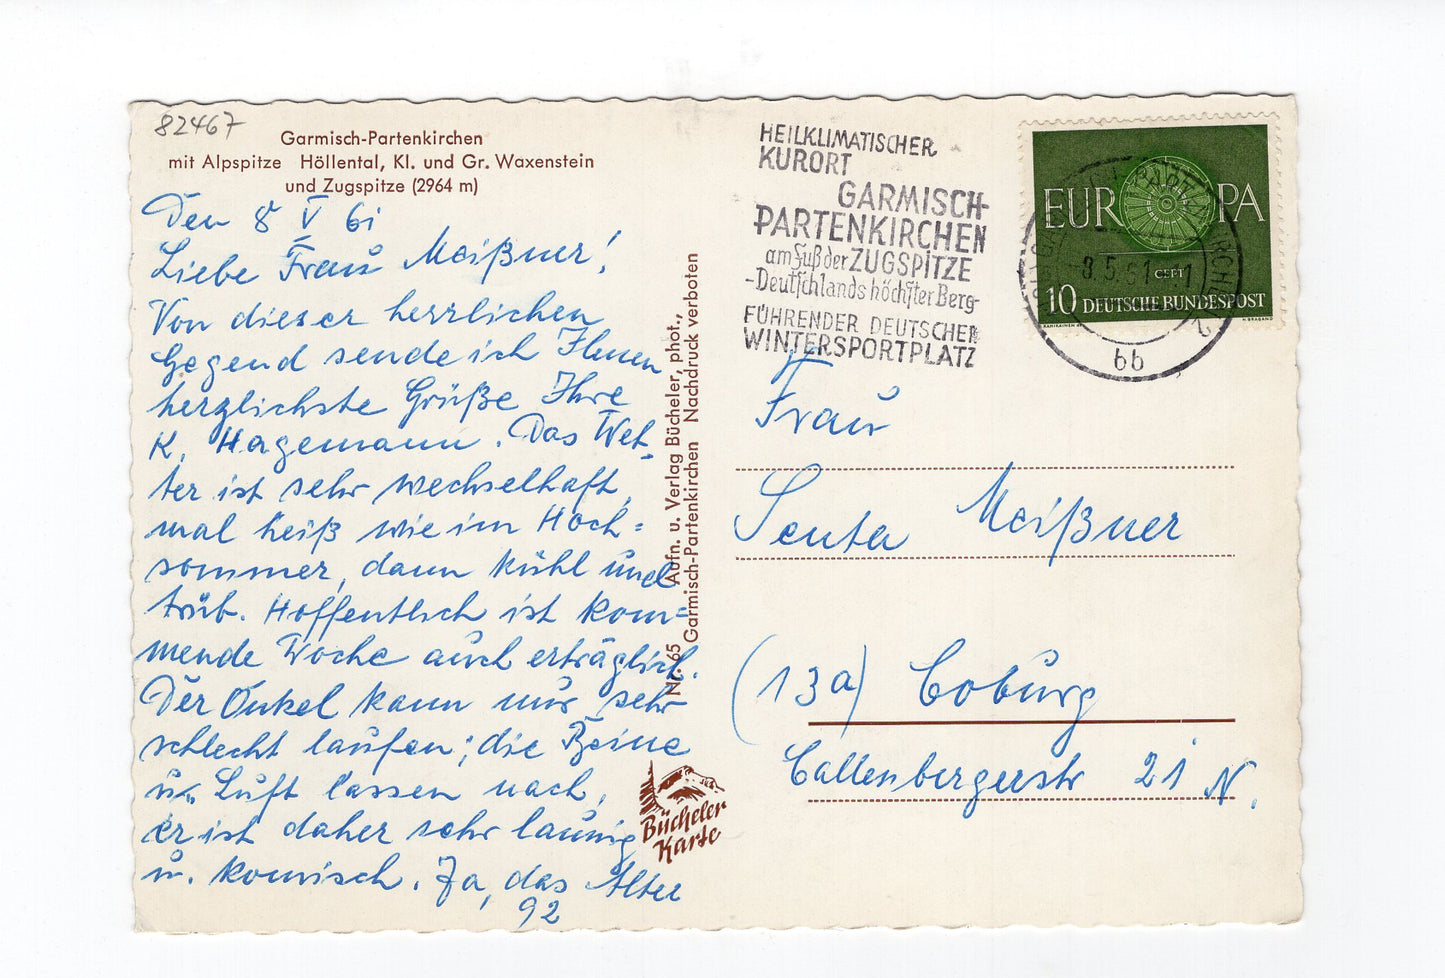 82467
Garmisch-Partenkirchen
mit Alpspitze Höllental, Kl. und Gr. Waxenstein
und Zugspitze (2964 m)
Den 8 V 61
Liebe Frau Meißner!
Von dieser herrlichen
Gegend sende ich Ihnen
herzlichste Grüße Ihre
K. Hagemann. Das Wet-
ter ist sehr wechselhaft,
mal heiß wie im Hoch=
sommer, dann kühl und
trüb. Hoffentlich ist kom=
mende Woche auch erträglich.
Der Onkel kann nur sehr
schlecht laufen; die Beine
u. Luft lassen nach,
er ist daher sehr launig
u. komisch. Ja, das Alter
92
Nr. 65 Aufn. u. Verlag Bücheler, phot.,
Garmisch-Partenkirchen Nachdruck verboten
Bücheler
Karte
HEILKLIMATISCHER
KURORT
GARMISCH-
PARTENKIRCHEN
am Fuß der ZUGSPITZE
-Deutschlands höchster Berg-
FÜHRENDER DEUTSCHER
WINTERSPORTPLATZ
EUROPA
CEPT
10 DEUTSCHE BUNDESPOST
8.5.61
bb
Frau
Senta Meißner
(13a) Coburg
Callenbergerstr 21 N.